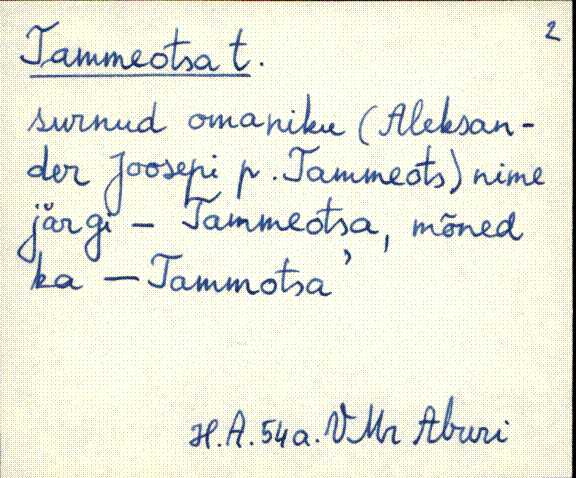 2
Tammeotsa t.
surnud omaniku (Aleksan-
der Joosepi p. Tammeots) nime
järgi – Tammeotsa, mõned
ka – Tammotsa'
H.A. 54a. VMr Aburi